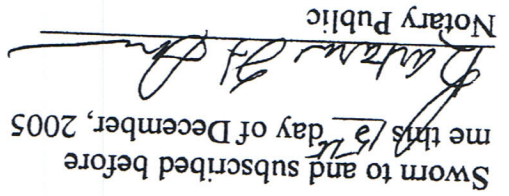 Sworn to and subscribed before
me this day of December, 2005
Notary Public